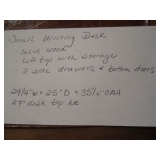 Small Writing Desk
- Solid wood
- Left top with storage
- 2 side drawers + bottom doors
29 1/4" W = 25" D = 35 1/2" OAH
29" desk top ht